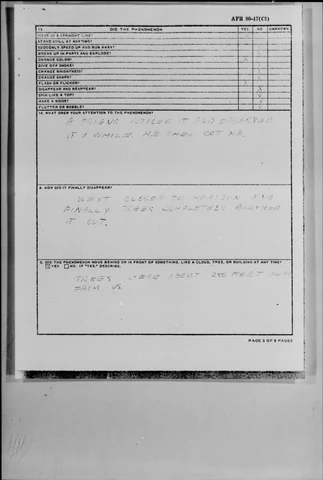 AFR 80-17(C1)
13. DID THE PHENOMENON YES NO UNKNOWN
MOVE IN A STRAIGHT LINE?
STAND STILL AT ANYTIME?
SUDDENLY SPEED UP AND RUN AWAY?
BREAK UP IN PARTS AND EXPLODE?
CHANGE COLOR? X
GIVE OFF SMOKE?
CHANGE BRIGHTNESS?
CHANGE SHAPE?
FLASH OR FLICKER?
DISAPPEAR AND REAPPEAR? X
SPIN LIKE A TOP?
MAKE A NOISE?
FLUTTER OR WOBBLE?
14. WHAT DREW YOUR ATTENTION TO THE PHENOMENON?
A FRIEND NOTICED IT AND OBSERVED
IT A WHILE. HE THEN GOT ME.
HOW DID IT FINALLY DISAPPEAR?
WENT CLOSER TO HORIZON AND
FINALLY TREES COMPLETELY BLOCKED
IT OUT.
DID THE PHENOMENON MOVE BEHIND OR IN FRONT OF SOMETHING, LIKE A CLOUD, TREE, OR BUILDING AT ANY TIME?
YES NO. IF "YES," DESCRIBE.
TREES WERE ABOUT 200 FEET
FROM US
PAGE 5 OF 9 PAGES